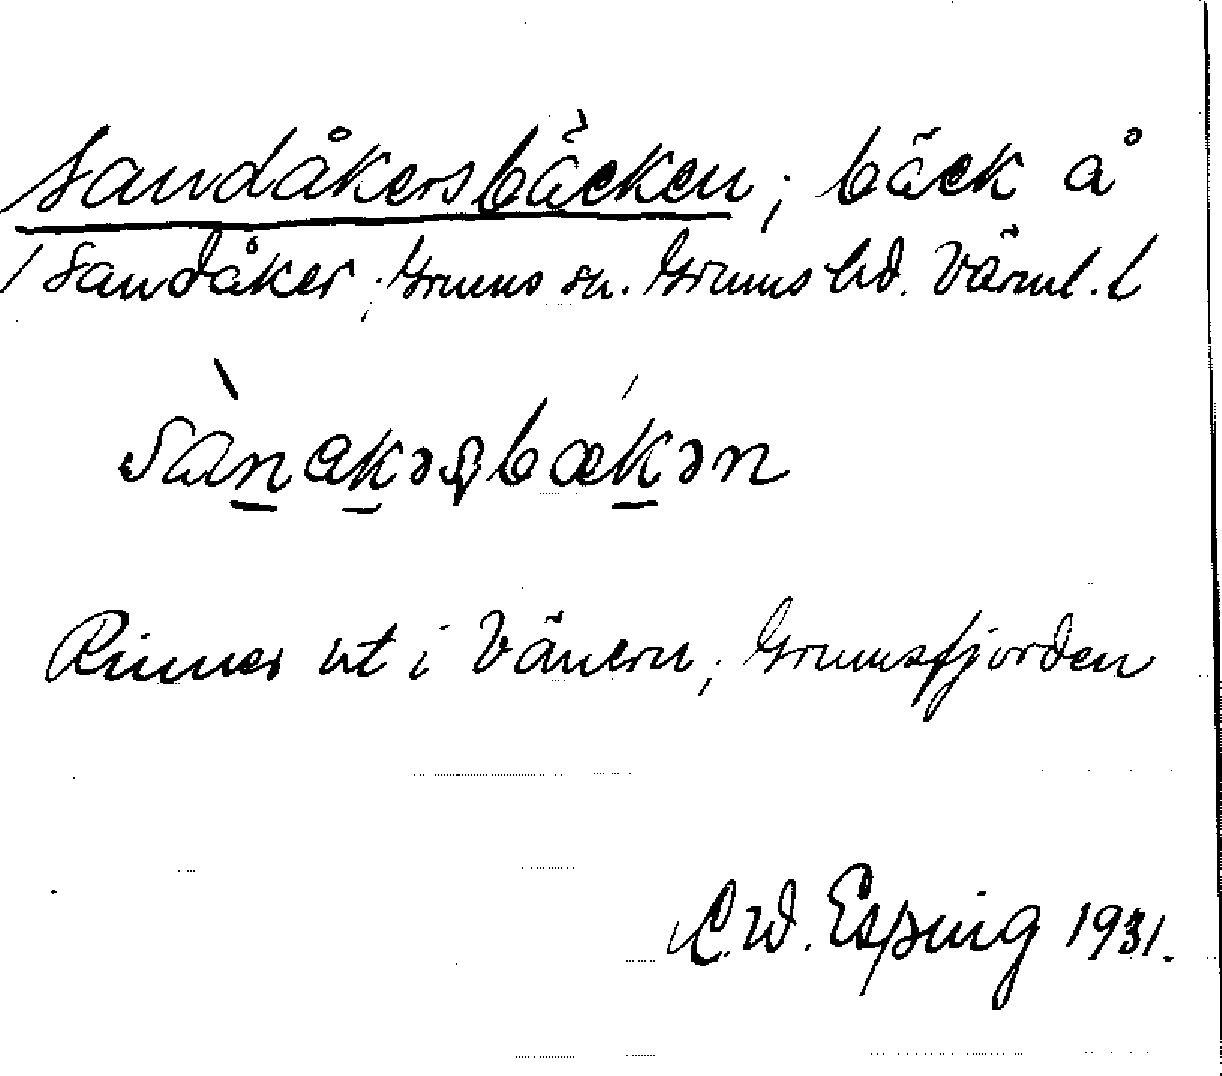 Sandåkersbäcken; bäck å
/ Sandåker; Grums sn. Grums hd. Värml. l
sànakəʂbækən
Rinner ut i Vänern, Grumsfjorden
Esping 1931.